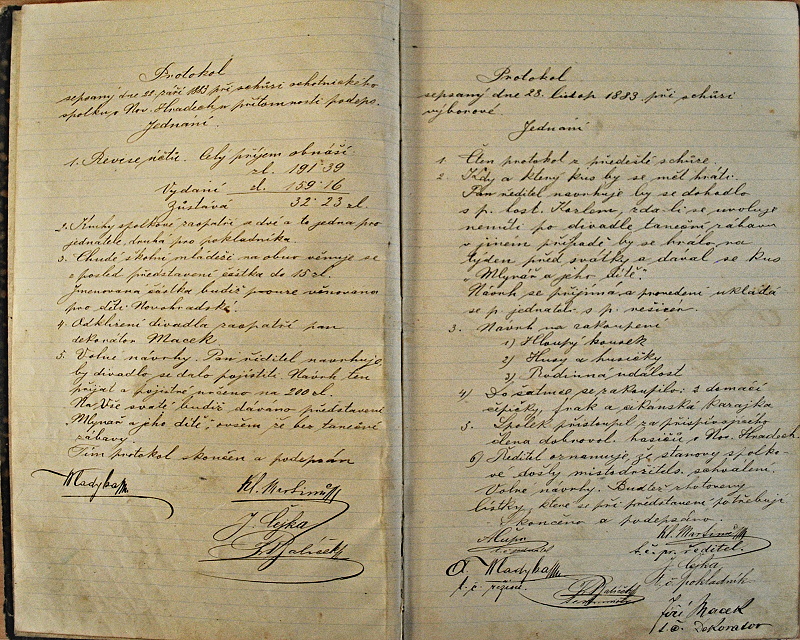 Protokol
sepsaný dne 22 září 1883 při schůzi ochotnického
spolku v Nov. Hradech v přítomnosti podeps.
Jednání.
1. Revise účtů. Celý příjem obnáší.
zl. 191·39
Vydaní zl. 159·16
Zůstává 32·23 zl.
2. Knihy spolkové zaopatří a dvě a to jedna pro
jednatele, druhá pro pokladníka.
3. Chudé školní mládeži na obuv věnuje se
z posled představení částka do 15 zl.
Jmenovaná částka budiž pouze věnována
pro děti Novohradské.
4. Odklizení divadla zaopatří pan
dekoratér Macek
5. Volné návrhy. Pan ředitel navrhuje,
by divadlo se dalo pojistiti. Návrh ten
přijat a pojistné určeno na 200 zl.
Na Vše svaté budiž dáváno představení
„Mlynář a jeho dítě", ovšem, že bez taneční
zábavy.
Tím protokol skončen a podepsán
Mladyba
Kl. Meršimů
J. Cejka
Protokol
sepsaný dne 28. listop 1883 při schůzi
výborové.
Jednání
1. Čten protokol z předešlé schůze.
2. Kdy a který kus by se měl hráti.
Pan ředitel navrhuje by se dohodlo
s p. host. Karlem, zda-li se uvoluje
nemíti po divadle taneční zábavu
v jinem případě by se hrálo na
týden před svátky a dával se kus
„Mlynář a jeho dítě"
Návrh se přijímá a provedení ukládá
se p. jednateli s p. režisér.
3. Návrh na zakoupení
1) Hloupý kousek
2) Husy a husičky
3) Rodinná událost
4) Do šatnice se zakoupilo: 3 domácí
čepičky, frak a cikánská kazajka
5. Spolek přistoupil za přispívajícího
člena dobrovol. hasičů v Nov. Hradech.
6) Ředitel oznamuje, že stanovy spolko-
vé došly místodržitels. schválení.
Volné návrhy. Budtež zhotoveny
lístky, které se při představení potřebují
Skončeno a podepsáno.
Kl. Meršimů
t. č. př. ředitel.
t. č. jednatel
J. Cejka
Mladyba
t. č. pokladník
t. č. režisér.
Jiří Macek
t. č. Dekorater